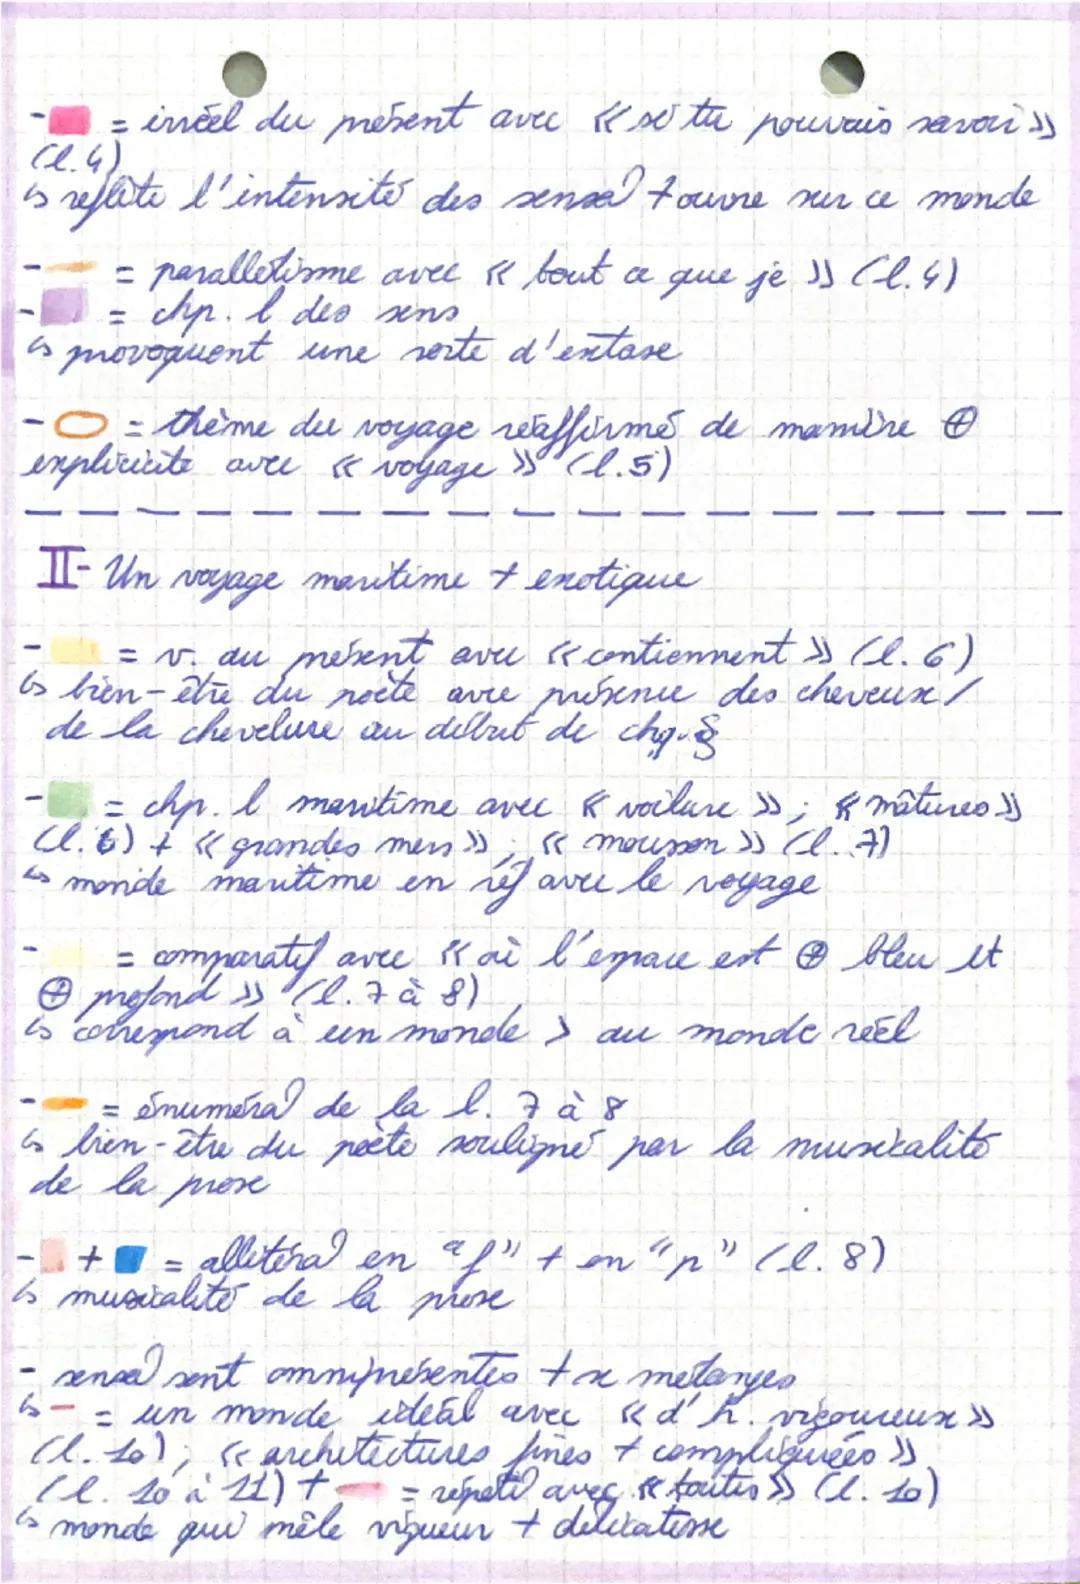 - = irréel du présent avec « si tu pouvais savoir »
(l.4)
↳ reflète l'intensité des sensa° + ouvre sur ce monde
- = parallélisme avec « tout ce que je » (l.4)
- = chp. l des sens
↳ provoquent une sorte d'extase
- = thème du voyage réaffirmé de manière ⊕
explicite avec « voyage » (l.5)
II- Un voyage maritime + exotique
- = v. au présent avec « contiennent » (l.6)
↳ bien-être du poète avec présence des cheveux /
de la chevelure au début de chq. §
- = chp. l maritime avec « voilure » ; « mâtures »
(l.6) + « grandes mers » ; « mousson » (l.7)
↳ monde maritime en réf avec le voyage
- = comparatif avec « où l'espace est ⊕ bleu et
⊕ profond » (l.7 à 8)
↳ correspond à un monde > au monde réel
- = énuméra° de la l. 7 à 8
↳ bien-être du poète souligné par la musicalité
de la prose
- + = allitéra° en "f" + en "p" (l.8)
↳ musicalité de la prose
- sensa° sont omniprésentes + se mélanges
↳ = un monde idéal avec « d'h. vigoureux »
(l.10) ; « architectures fines + compliquées »
(l. 10 à 11) + = répéti° avec « toutes » (l.10)
↳ monde qui mêle vigueur + délicatesse